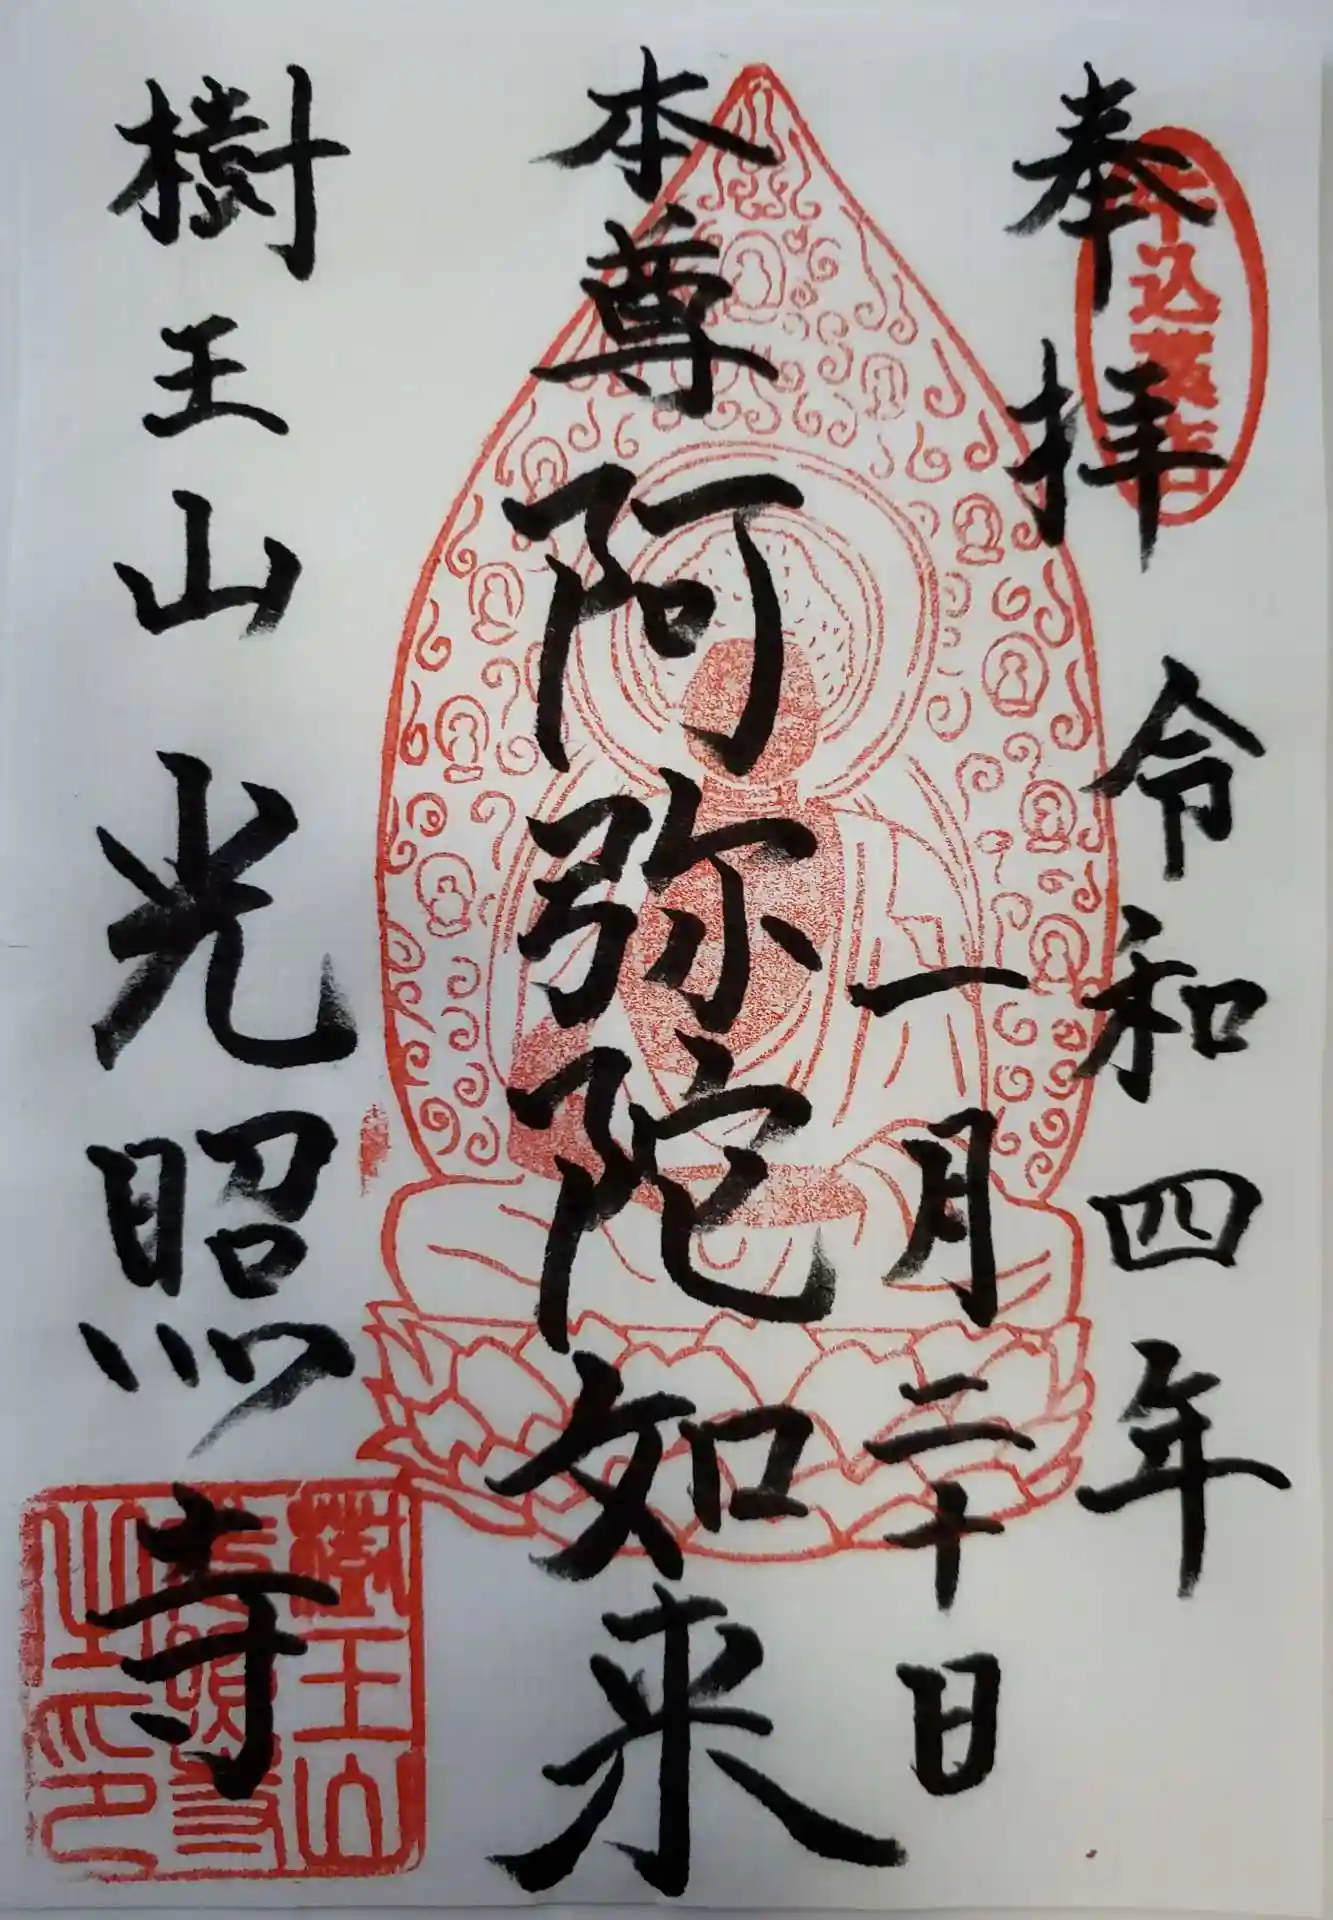 奉拝
令和四年
一月二十日
本尊
阿弥陀如来
樹王山
光照寺
樹王山